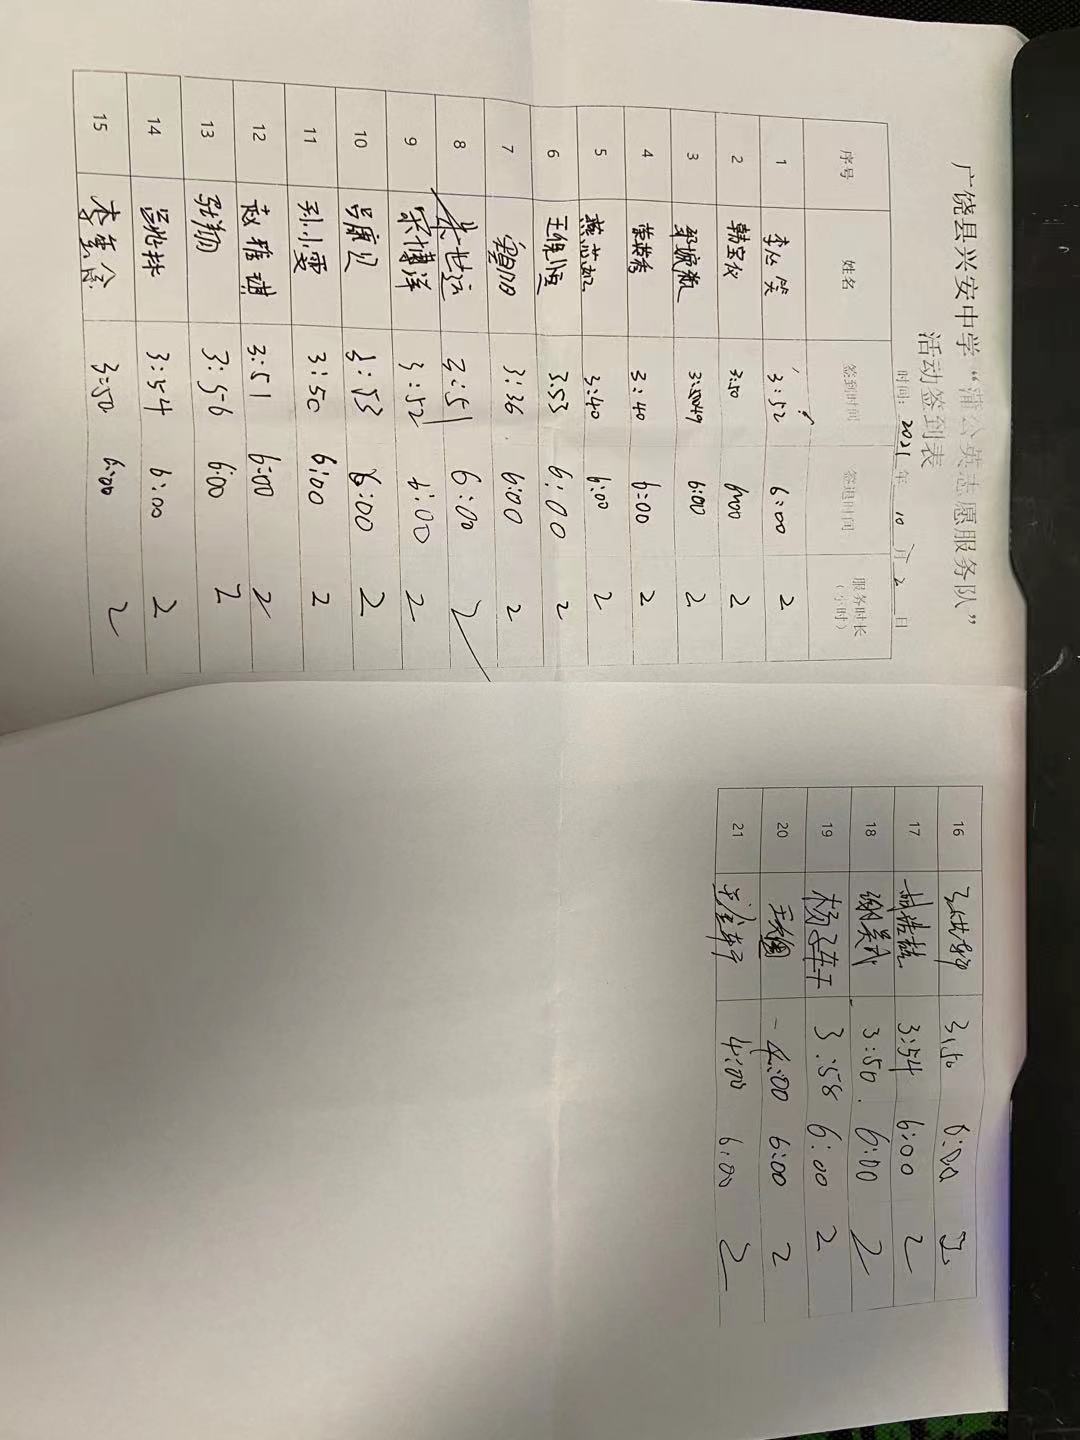 广饶县兴安中学“蒲公英志愿服务队”
活动签到表
时间：2021年10月2日
序号 姓名 签到时间 签退时间 服务时长（小时）
1 李怂笑 3:52 6:00 2
2 韩宝仪 3:50 6:00 2
3 6:00 2
4 荣英秀 3:40 6:00 2
5 燕芯如 3:40 6:00 2
6 王俊恒 3:53 6:00 2
7 3:36 6:00 2
8 朱世运 3:51 6:00 2
9 宋博洋 3:52 6:00 2
10 吕宸贝 3:53 6:00 2
11 孙小雯 3:50 6:00 2
12 赵雅琪 3:51 6:00 2
13 张翔 3:56 6:00 2
14 3:54 6:00 2
15 3:50 6:00 2
16 3:50 6:00 2
17 3:54 6:00 2
18 谢昊成 3:50 6:00 2
19 杨子轩 3:58 6:00 2
20 4:00 6:00 2
21 4:00 6:00 2